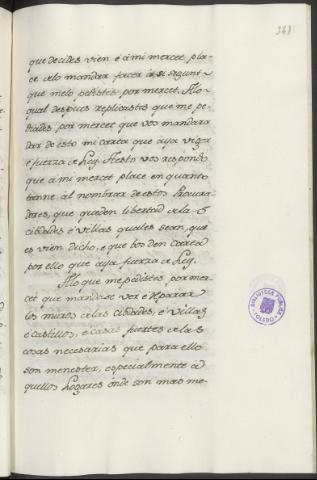 363
que decides vien è à mi mercet pla-
ce velo mandar facer asi segunt
que melo pedistes por mercet. Alo
qual despues replicastes que me pe-
diades por mercet que vos mandara
dar de esto mi carta que aya vigor
è fuerza de Ley. A esto vos respondo
que a mi mercet place en quanto
tanne al nombrar de estos Procura-
dores, que queden libertad de las
cibdades è villas quales sean, que
es vien dicho, è que vos den Cartas
por ello que aya fuerza de Ley.
Alo que me pedistes por mer-
cet que mandase ver è reparar
los muros de las cibdades, è villas
è castillos, è casas fuertes de las
cosas necesarias que para ello
son menester, especialmente à
quellos logares onde son mas me-
BIBLIOTECA PUBLICA
TOLEDO